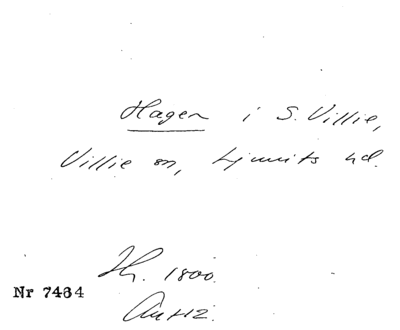 Hagen i S. Villie,
Villie sn, Ljunits hd.
Th. 1800.
Nr 7464